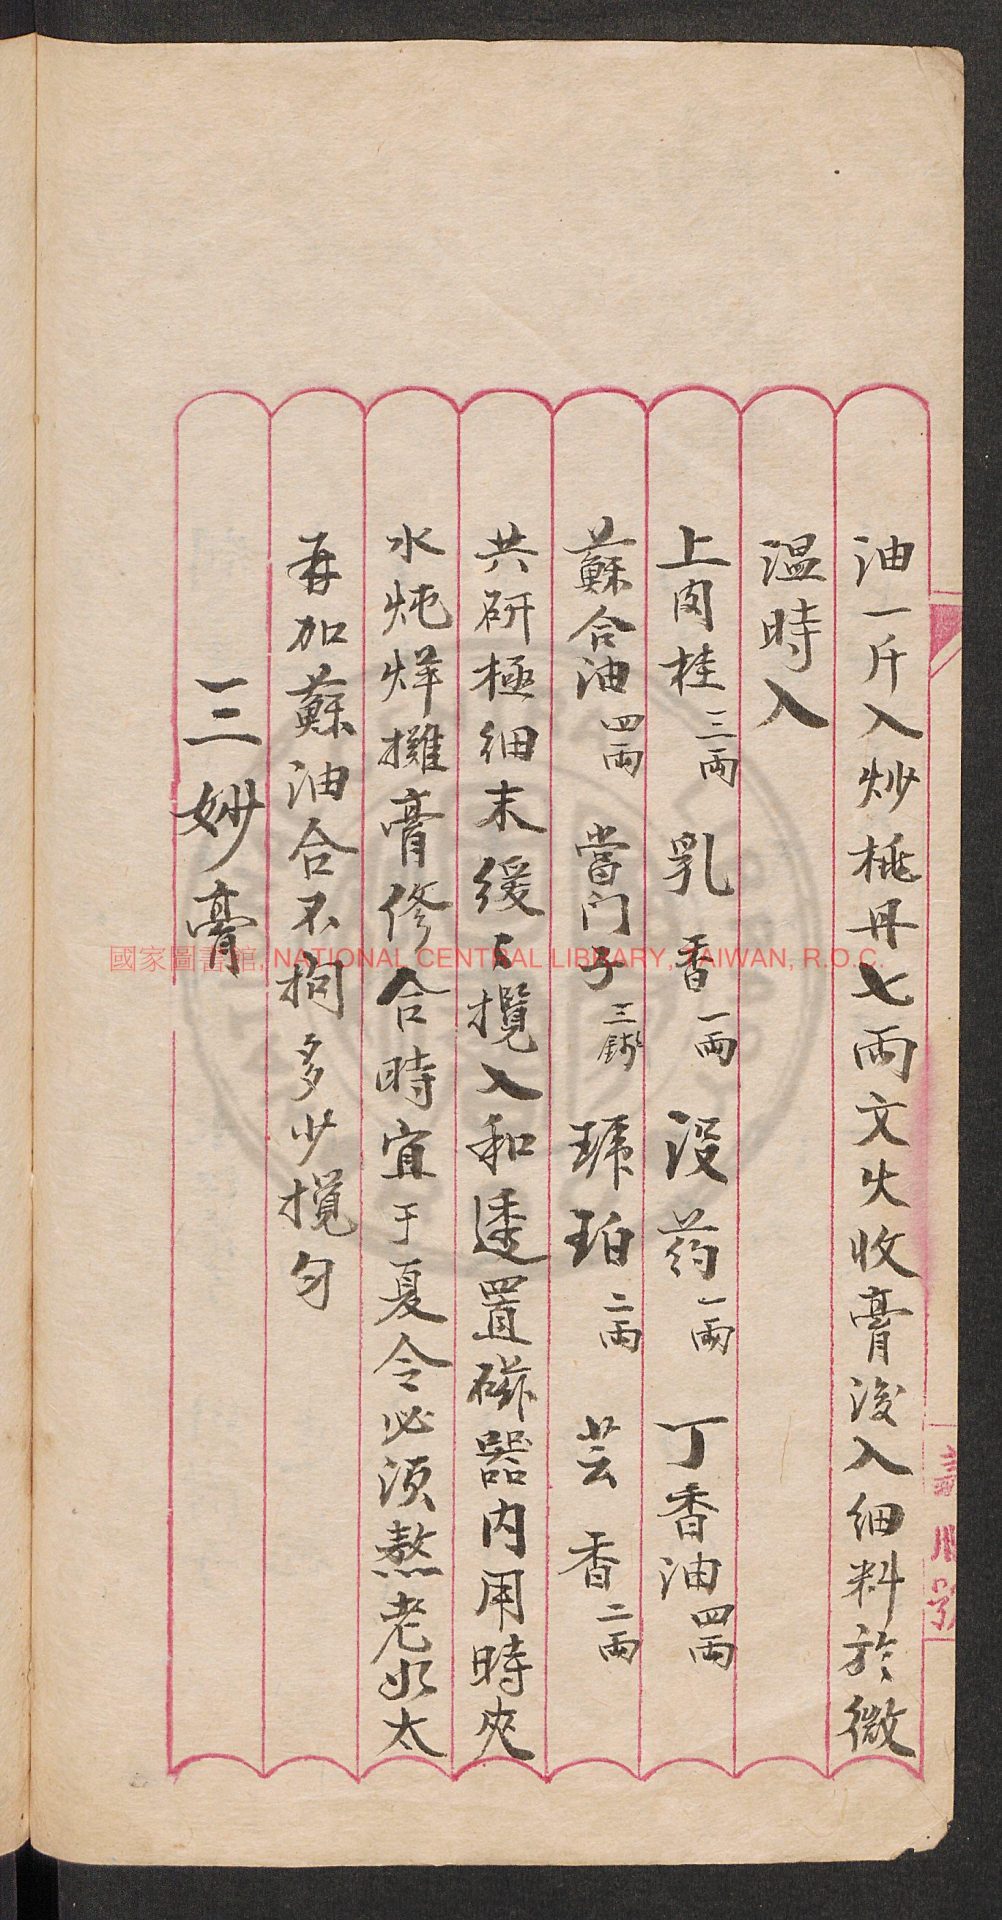 油一斤入炒桃丹七兩文火收膏後入細料於微
温時入
上肉桂三兩 乳香一兩 没药一兩 丁香油四兩
蘇合油四兩 當门子三錢 琥珀二兩 芸香二兩
共研極細末緩〻攪入和透置磁器内用時夾
水炖烊攤膏修合時宜于夏令必須熬老如太
再加蘇油合不拘多少攪匀
三妙膏
國家圖書館, NATIONAL CENTRAL LIBRARY, TAIWAN, R.O.C.